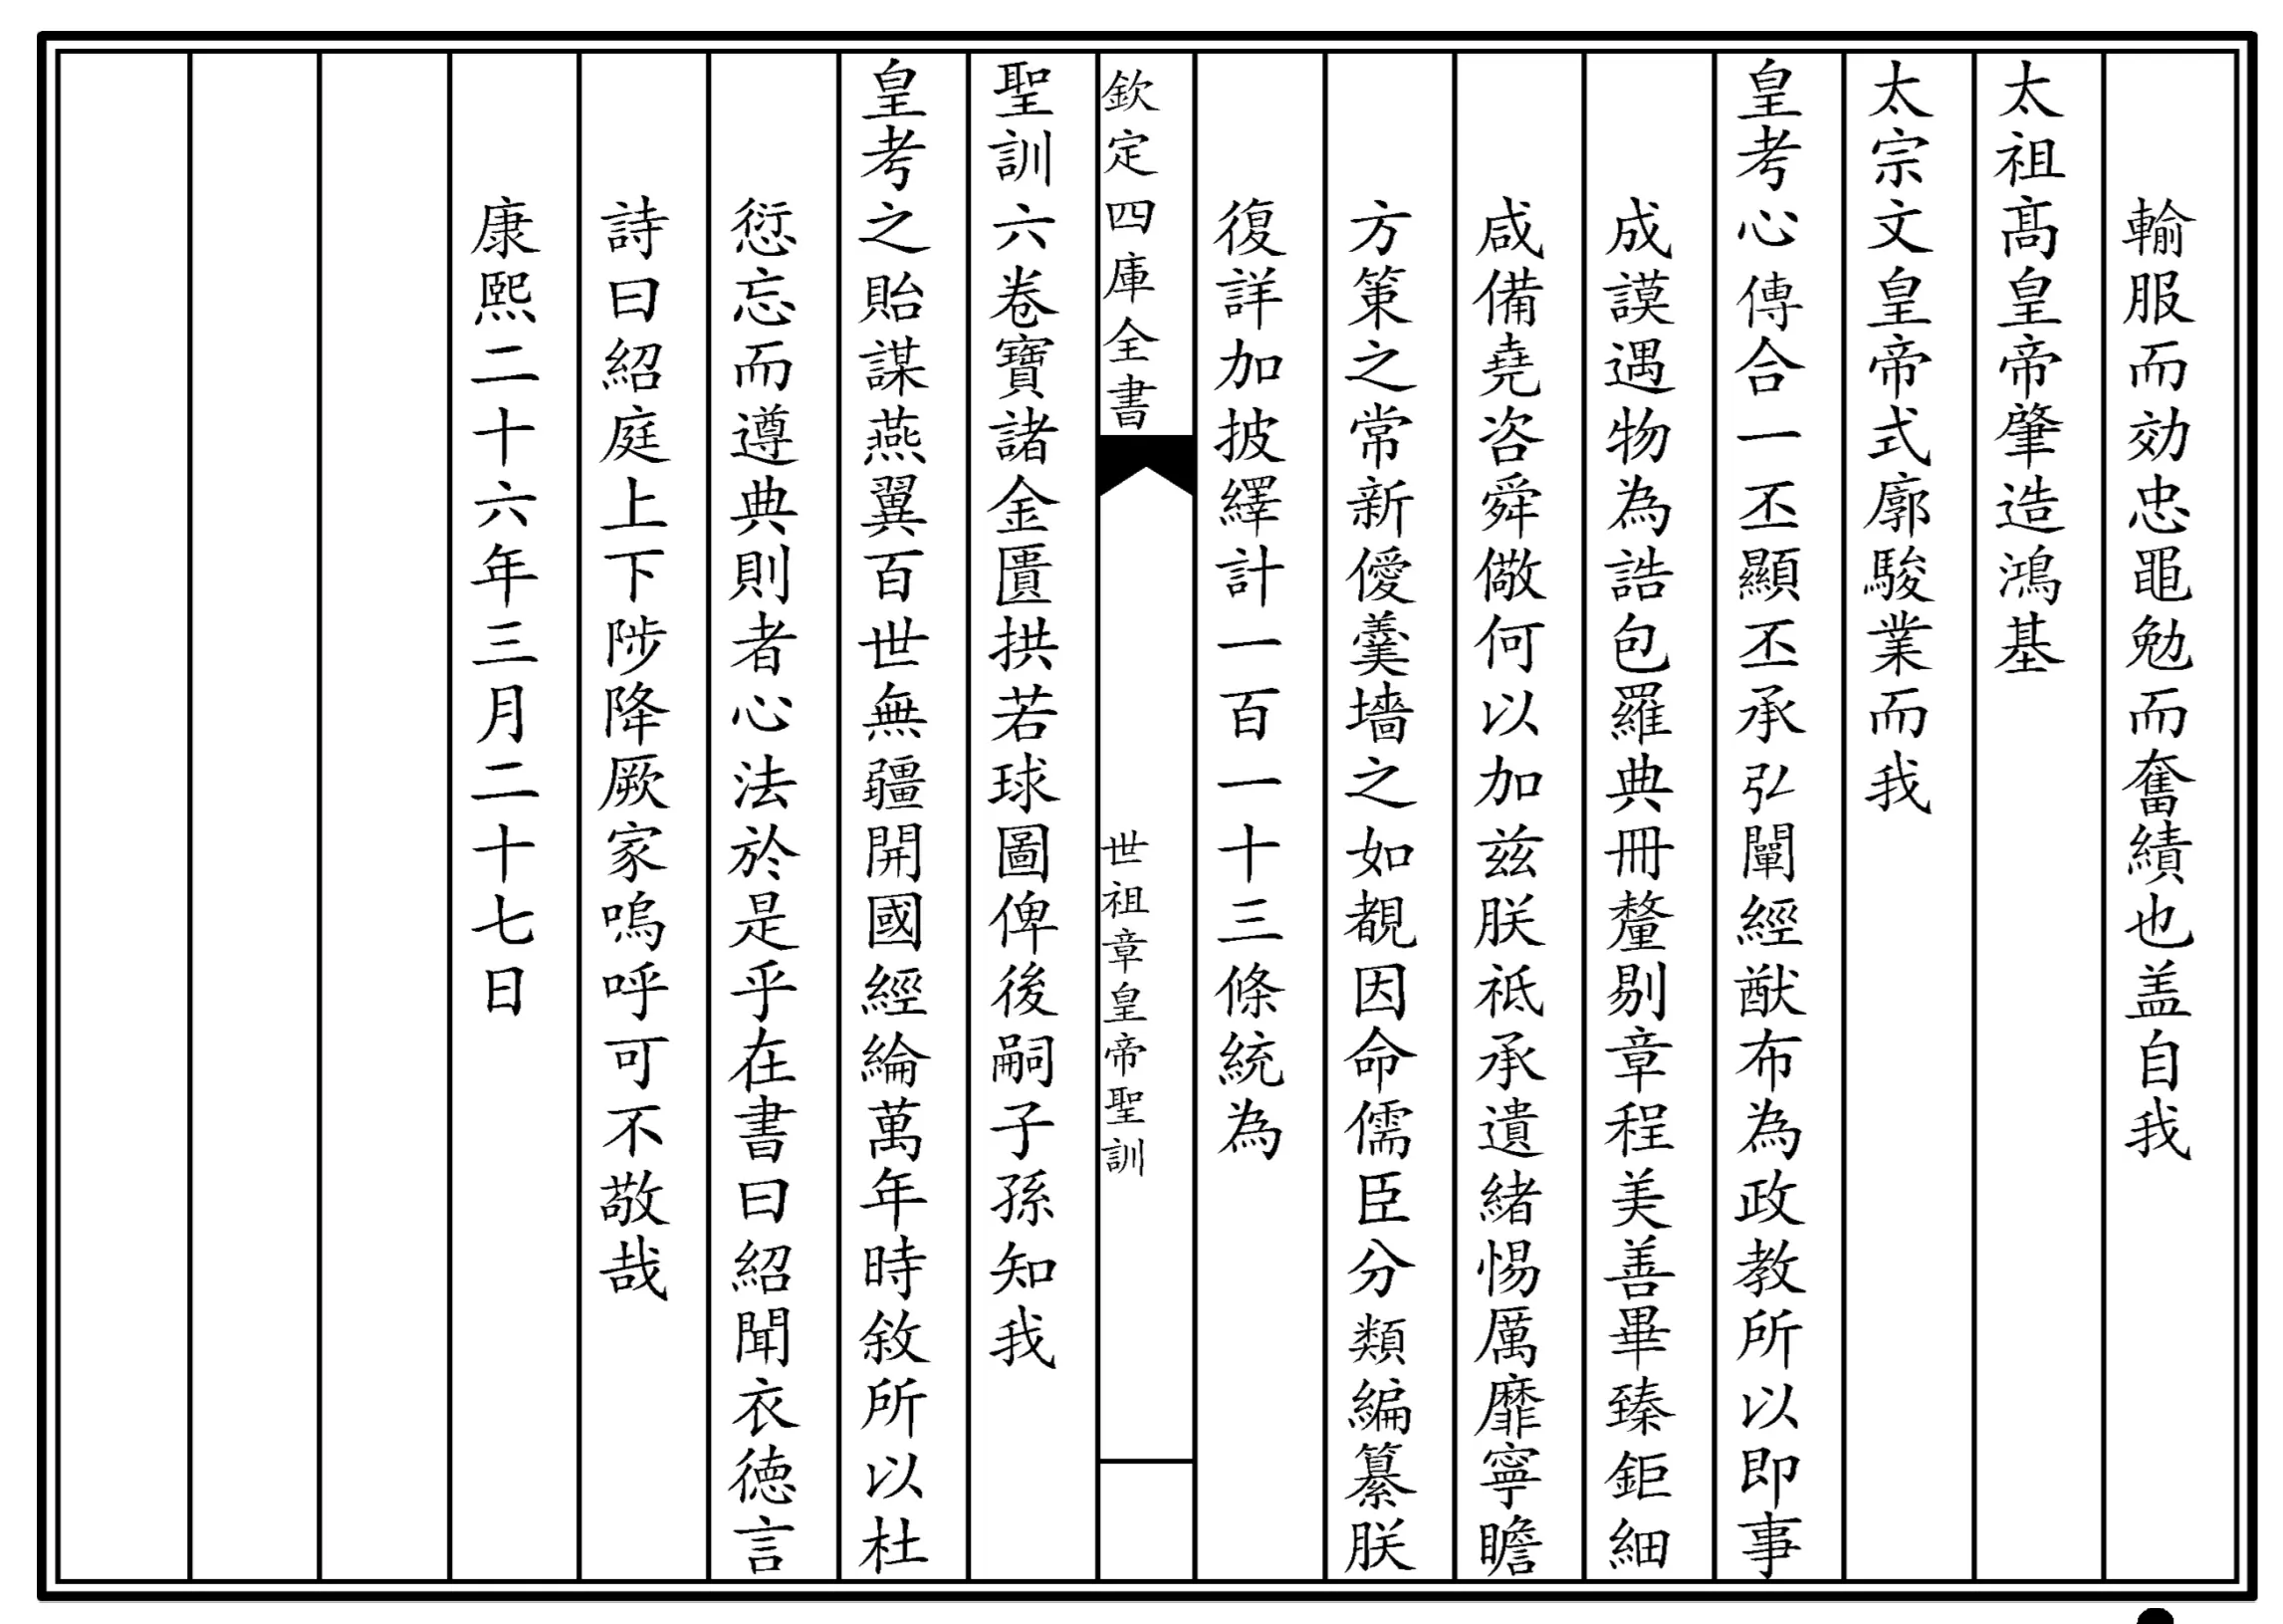 輸服而効忠黽勉而奮績也盖自我
太祖髙皇帝肇造鴻基
太宗文皇帝式廓駿業而我
皇考心傳合一丕顯丕承弘闡經猷布為政教所以即事
成謨遇物為誥包羅典冊釐剔章程美善畢臻鉅細
咸備堯咨舜儆何以加兹朕祗承遺緒惕厲靡寧瞻
方策之常新僾羹墻之如覩因命儒臣分類編纂朕
復詳加披繹計一百一十三條統為
欽定四庫全書
世祖章皇帝聖訓
聖訓六卷寶諸金匱拱若球圖俾後嗣子孫知我
皇考之貽謀燕翼百世無疆開國經綸萬年時敘所以杜
愆忘而遵典則者心法於是乎在書曰紹聞衣徳言
詩曰紹庭上下陟降厥家嗚呼可不敬哉
康熙二十六年三月二十七日